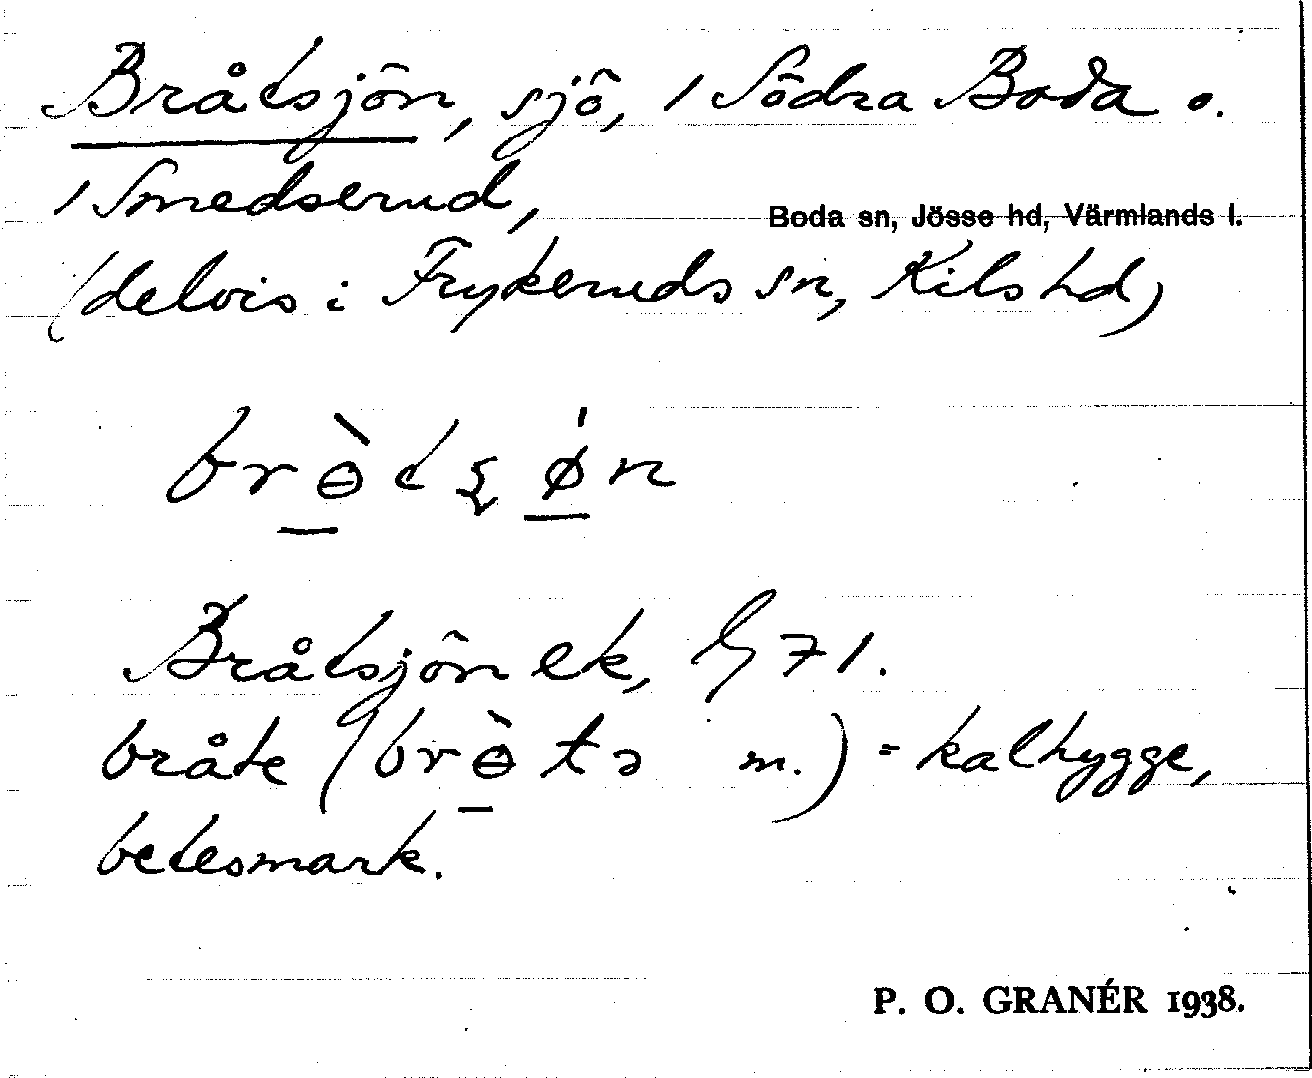 Bråtsjön, sjö, 1 Södra Boda o.
1 Smedserud,
Boda sn, Jösse hd, Värmlands l.
(delvis i Frykeruds sn, Kils hd)
brɵ̱̀tʂǿ̱n
Bråtsjön ek, G 71.
bråte (brɵ̱̀tə m.) = kalhygge,
betesmark.
P. O. GRANÉR 1938.